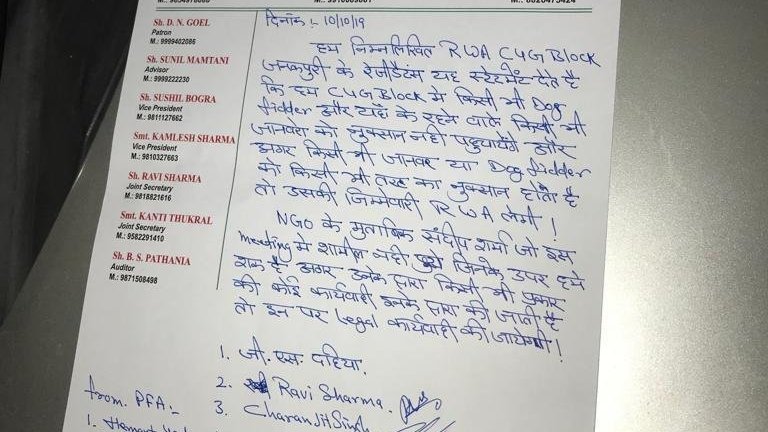 Sh. D. N. GOEL
Patron
M.: 9999402086
Sh. SUNIL MAMTANI
Advisor
M.: 9999222230
Sh. SUSHIL BOGRA
Vice President
M.: 9811127662
Smt. KAMLESH SHARMA
Vice President
M.: 9810327663
Sh. RAVI SHARMA
Joint Secretary
M.: 9818821616
Smt. KANTI THUKRAL
Joint Secretary
M.: 9582291410
Sh. B. S. PATHANIA
Auditor
M.: 9871508498
दिनांक :- 10/10/19
हम निम्नलिखित RWA C4G BLOCK
जनकपुरी के रेजीडेंटस यह स्टेटमेंट देते है
कि हम C4G Block में किसी भी Dog
fidder और यहाँ के रहने वाले किसी भी
जानवरो को नुक्सान नही पहुचायेंगे और
अगर किसी भी जानवर या Dog fidder
को किसी भी तरह का नुक्सान होता है
तो उसकी जिम्मेवारी RWA लेगी !
NGO के मुताबिक संदीप शर्मा जो इस
meeting मे शामील नही हुये जिनके उपर हमे
शक है अगर उनके द्वारा किसी भी प्रकार
की कोई कार्यवाही उनके द्वारा की जाती है
तो इन पर Legal कार्यवाही की जायेगी !
1. जी. एस. दहिया.
2. Ravi Sharma.
3. Charanjit Singh
from. PFA:-
1. Hemant